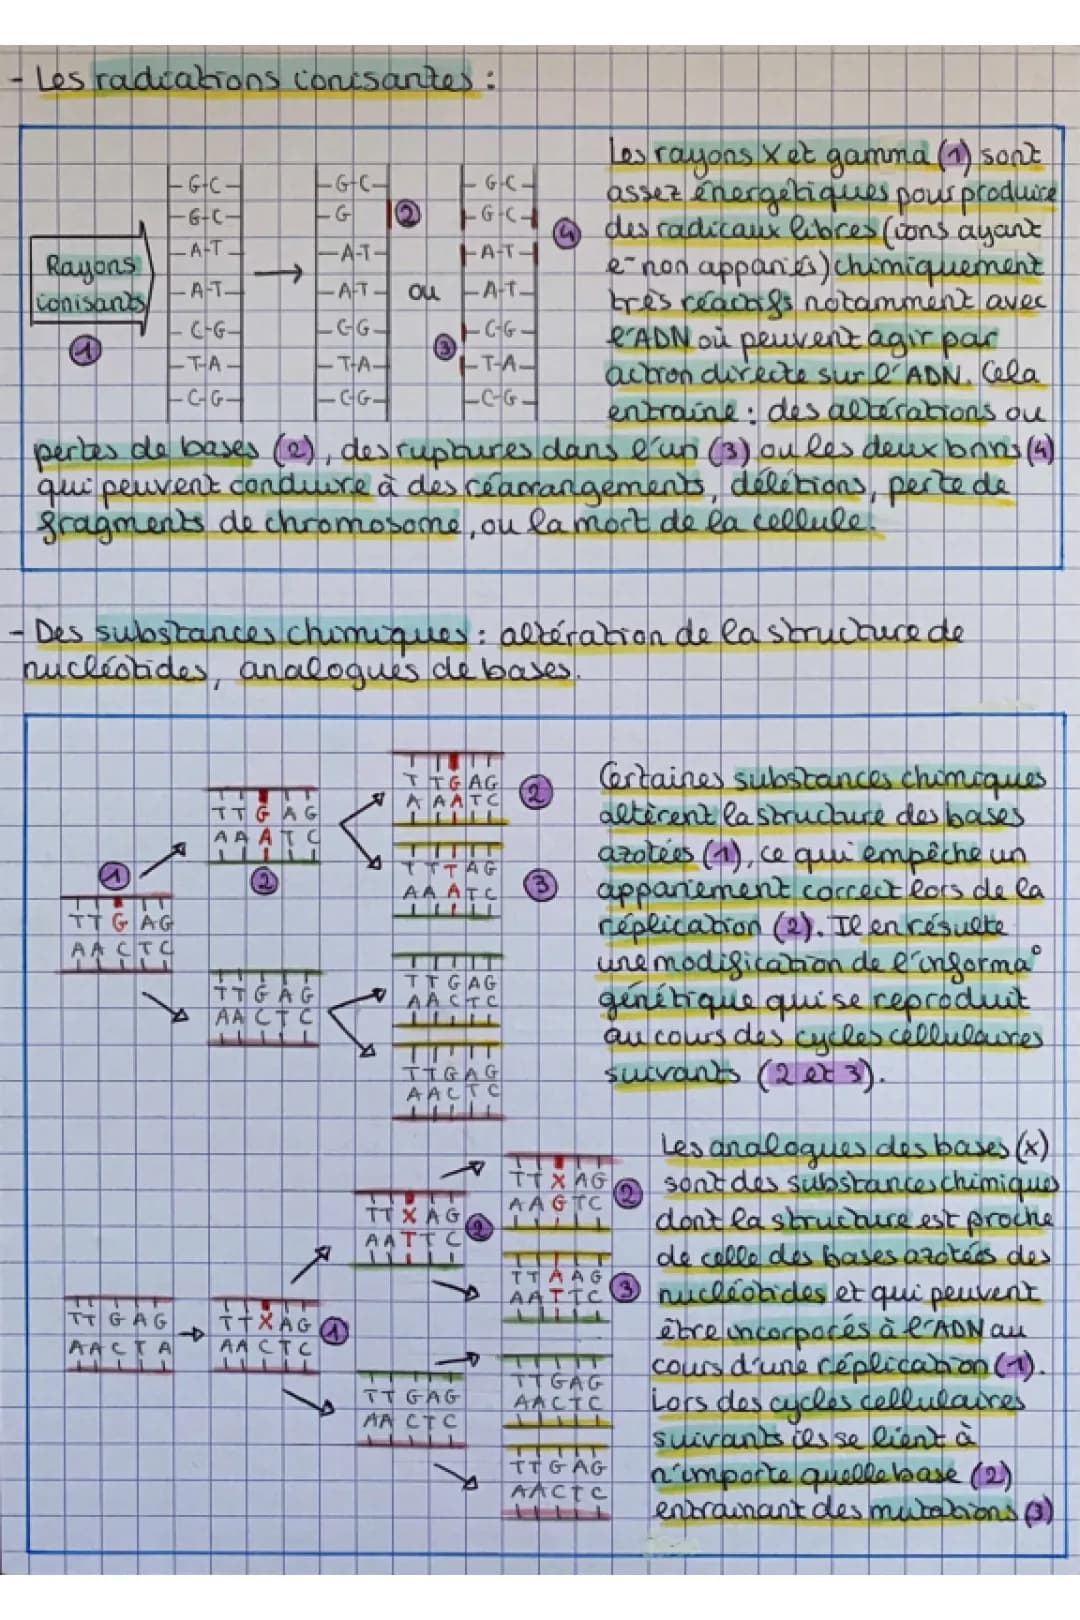 - Les radiations ionisantes :
Rayons
ionisants
1
-G-C-
-G-C-
-A-T-
-A-T-
-C-G-
-T-A-
-C-G-
-G-C-
-G
-A-T-
-A-T-
-C-G-
-T-A-
-C-G-
2
ou
3
-G-C-
-G-C-
-A-T-
-A-T-
-C-G-
-T-A-
-C-G-
4
Les rayons X et gamma (1) sont
assez énergétiques pour produire
des radicaux libres (ions ayant
e⁻ non appariés) chimiquement
très réactifs notamment avec
l'ADN où peuvent agir par
action directe sur l'ADN. Cela
entraine : des altérations ou
pertes de bases (2), des ruptures dans l'un (3) ou les deux brins (4)
qui peuvent conduire à des réarrangements, délétions, perte de
fragments de chromosome, ou la mort de la cellule.
- Des substances chimiques : altération de la structure de
nucléotides, analogues de bases.
1
TTGAG
AACTC
TTGAG
AAATC
2
TTGAG
AACTC
TTGAG
AAATC
2
TTTAG
AAATC
3
TTGAG
AACTC
TTGAG
AACTC
Certaines substances chimiques
altèrent la structure des bases
azotées (1), ce qui empêche un
appariement correct lors de la
réplication (2). Il en résulte
une modification de l'informa°
génétique qui se reproduit
au cours des cycles cellulaires
suivants (2 et 3).
TTGAG
AACTA
TTXAG
AACTC
1
TTXAG
AATTC
2
TTGAG
AACTC
TTXAG
AAGTC
2
TTAAG
AATTC
3
TTGAG
AACTC
TTGAG
AACTC
Les analogues des bases (x)
sont des substances chimiques
dont la structure est proche
de celle des bases azotées des
nucléotides et qui peuvent
être incorporés à l'ADN au
cours d'une réplication (1).
Lors des cycles cellulaires
suivants ils se lient à
n'importe quelle base (2)
entrainant des mutations (3)